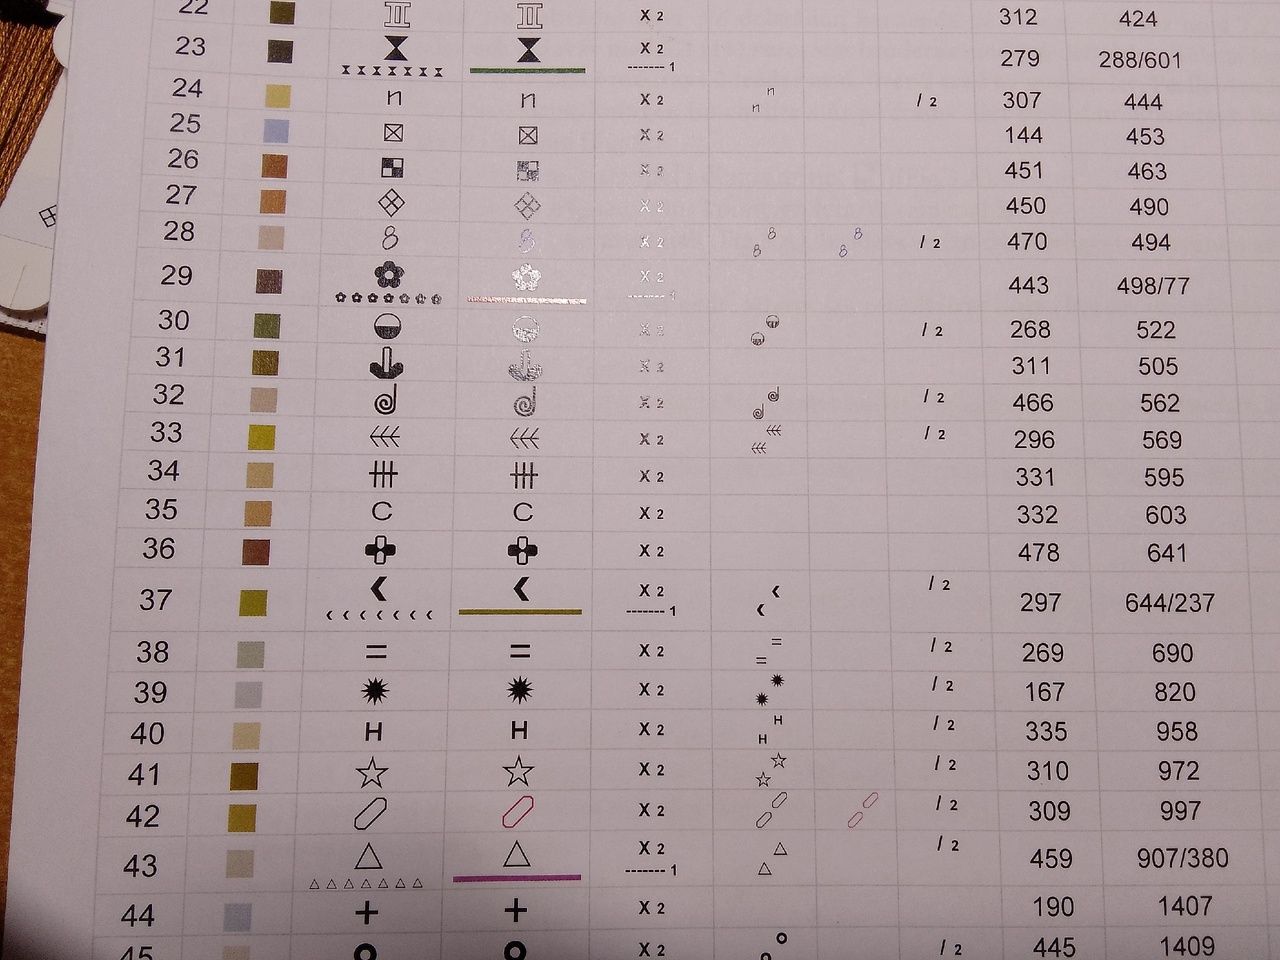 22 X 2 312 424
23 X 2 ------- 1 279 288/601
24 n n X 2 n n / 2 307 444
25 X 2 144 453
26 X 2 451 463
27 X 2 450 490
28 8 8 X 2 8 8 8 8 / 2 470 494
29 X 2 ------- 1 443 498/77
30 X 2 / 2 268 522
31 X 2 311 505
32 X 2 / 2 466 562
33 X 2 / 2 296 569
34 X 2 331 595
35 C C X 2 332 603
36 X 2 478 641
37 X 2 ------- 1 / 2 297 644/237
38 = = X 2 = = / 2 269 690
39 X 2 / 2 167 820
40 H H X 2 H H / 2 335 958
41 X 2 / 2 310 972
42 X 2 / 2 309 997
43 X 2 ------- 1 / 2 459 907/380
44 + + X 2 190 1407
45 X 2 / 2 445 1409